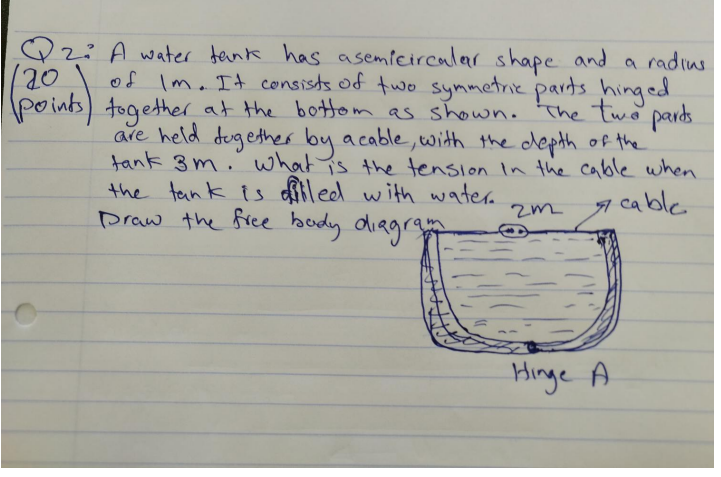 Q2: A water tank has asemicircular shape and a radius
(20 of 1m. It consists of two symmetric parts hinged
points) together at the bottom as shown. The two parts
are held together by a cable, with the depth of the
tank 3m. What is the tension in the cable when
the tank is filled with water.
Draw the free body diagram
2m cable
Hinge A